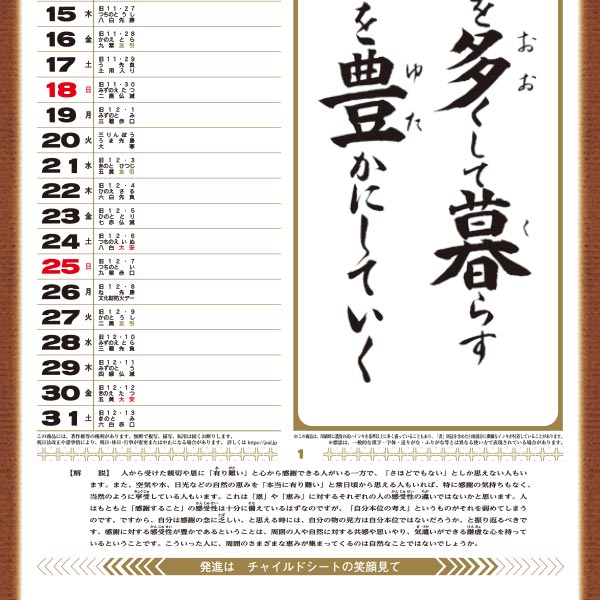 15 木 旧11・27 つちのと うし 八白 先勝
16 金 旧11・28 かのえ とら 九紫 友引
17 土 旧11・29 う 先負 土用入り
18 日 旧11・30 みずのえ たつ 二黒 仏滅
19 月 旧12・1 みずのと み 三碧 赤口
20 火 三りんぼう うま 先勝 大寒
21 水 旧12・3 きのと ひつじ 五黄 友引
22 木 旧12・4 ひのえ さる 六白 先負
23 金 旧12・5 ひのと とり 七赤 仏滅
24 土 旧12・6 つちのえ いぬ 八白 大安
25 日 旧12・7 つちのと い 九紫 赤口
26 月 旧12・8 ね 先勝 文化財防火デー
27 火 旧12・9 かのと うし 二黒 友引
28 水 旧12・10 みずのえ とら 三碧 先負
29 木 旧12・11 みずのと う 四緑 仏滅
30 金 旧12・12 きのえ たつ 五黄 大安
31 土 旧12・13 きのと み 六白 赤口
を多くして暮らす
おお
く
を豊かにしていく
ゆた
この商品には、著作権等の権利があります。無断で複写、描写、転用は固くお断りします。
祝日法改正や諸事情により、祝日・休日・行事が変更または中止になる場合があります。
1
【解 説】 人から受けた親切や恩に「有り難い」と心から感謝できる人がいる一方で、「さほどでもない」としか思えない人もい
ます。また、空気や水、日光などの自然の恵みを「本当に有り難い」と常日頃から思える人もいれば、特に感謝の気持ちもなく、
当然のように享受している人もいます。これは「恩」や「恵み」に対するそれぞれの人の感受性の違いではないかと思います。人
はもともと「感謝すること」の感受性は十分に備えているはずなのですが、「自分本位の考え」というものがそれを弱めてしまう
のです。ですから、自分は感謝の念に乏しい、と思える時には、自分の物の見方は自分本位ではないだろうか、と振り返るべきで
す。感謝に対する感受性が豊かであるということは、周囲の人や自然に対する共感や思いやり、気遣いができる謙虚な心を持って
いるということです。こういった人に、周囲のさまざまな恵みが集まってくるのは自然なことではないでしょうか。
発進は チャイルドシートの笑顔見て